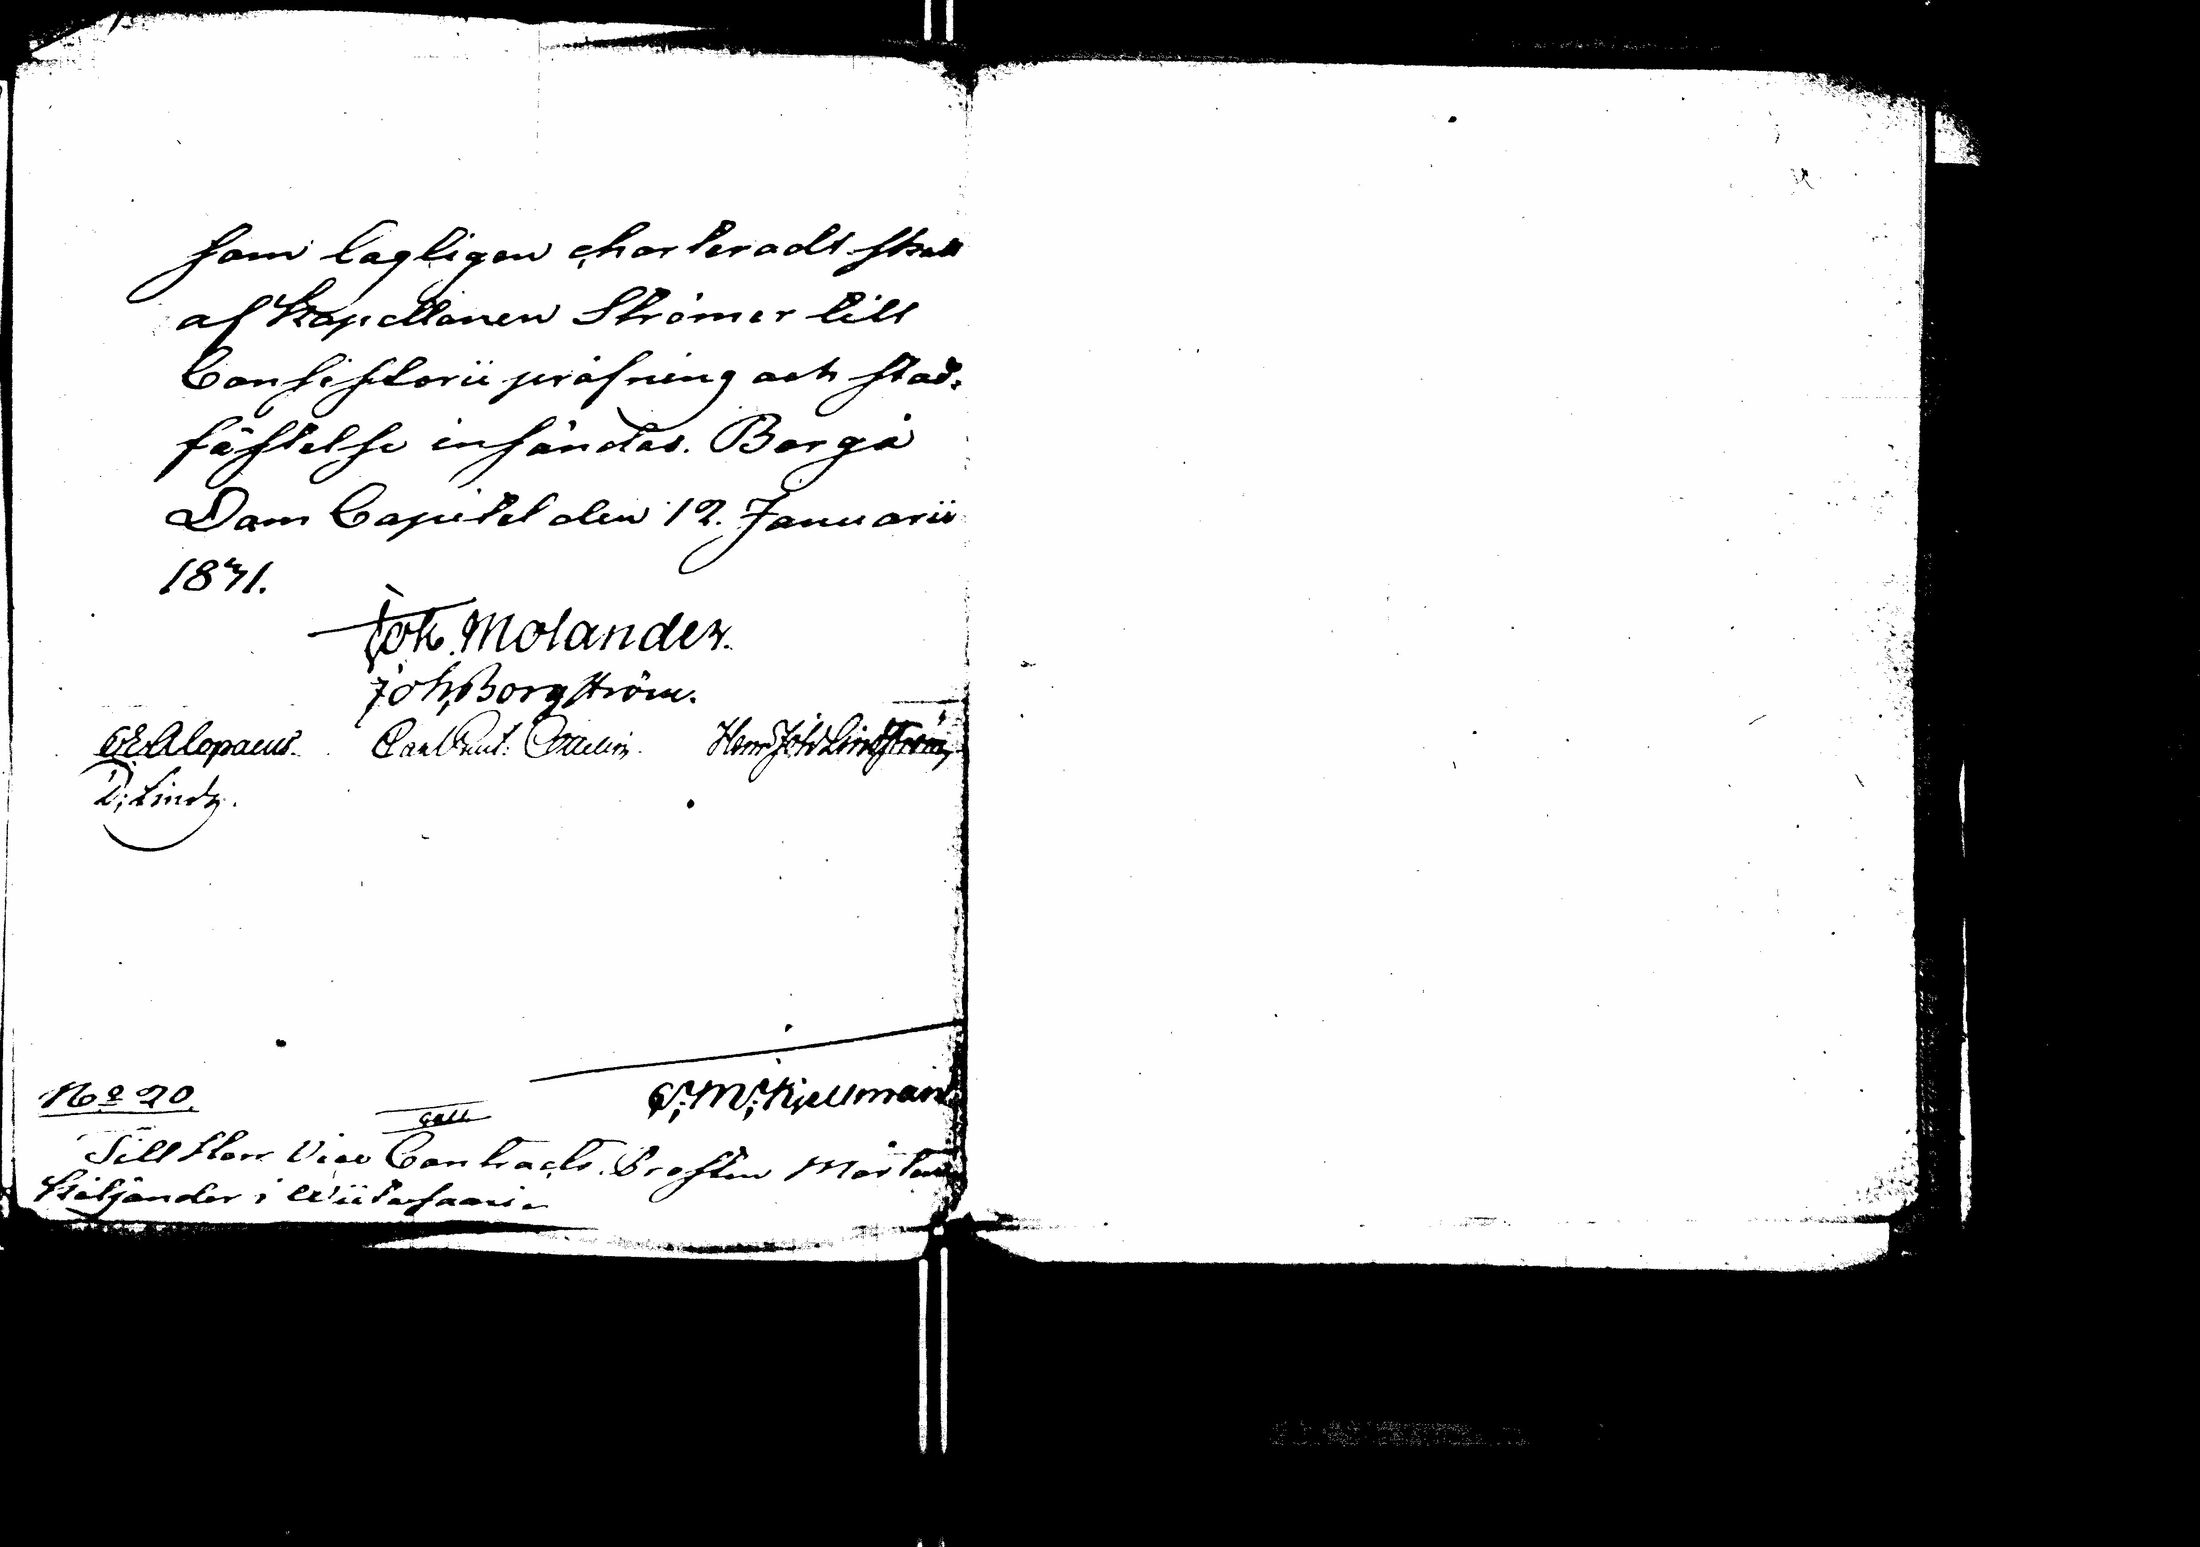 som lagligen charteradt skall
af Kapellanen Strömer till
Consistorii pröfning och stad-
fästelse insändas. Borgå
Dom Capitel den 12. Januarii
1831.
Joh. Molander.
Joh. Borgström.
Alopaeus. Carl Ottelin. Henr. Joh. Lindström
D. Lindh.
No 20. Kjellman
Coll
Till Herr Vice Contracts Prosten Mårten
Kiljander i Wiitasaari.